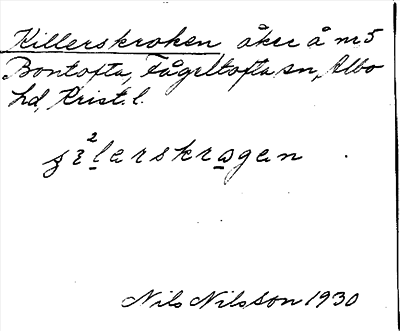 Killerskroken åker å nr 5
Bontofta, Fågeltofta sn, Albo
hd, Krist. l.
2lerskrogen
Nils Nilsson 1930